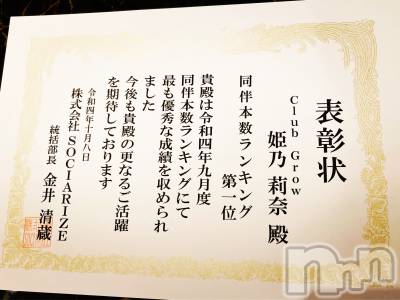 表彰状
Club Grow
姫乃 莉奈 殿
同伴本数ランキング
第一位
貴殿は令和四年九月度
同伴本数ランキングにて
最も優秀な成績を収められ
ました
今後も貴殿の更なるご活躍
を期待しております
令和四年十月八日
株式会社 SOCIARIZE
統括部長 金井 清蔵
nnn